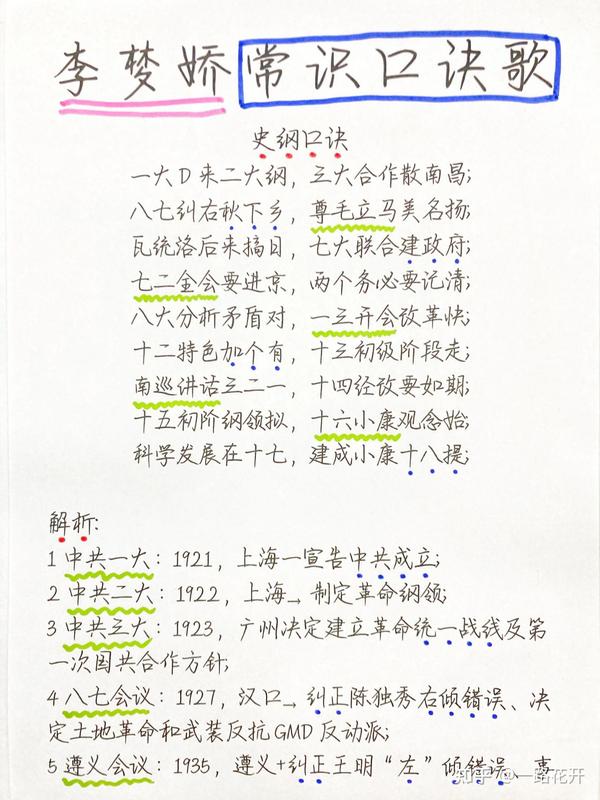 李梦娇常识口诀歌
史纲口诀
一大D来二大纲，三大合作散南昌;
八七纠右秋下乡，尊毛立马美名扬;
瓦统洛后来搞日，七大联合建政府;
七二全会要进京，两个务必要记清;
八大分析矛盾对，一三开会改革快;
十二特色加个有，十三初级阶段走;
南巡讲话三二一，十四经改要如期;
十五初阶纲领拟，十六小康观念始;
科学发展在十七，建成小康十八提;
解析:
1 中共一大: 1921，上海—宣告中共成立;
2 中共二大: 1922，上海→制定革命纲领;
3 中共三大: 1923，广州决定建立革命统一战线及第
一次国共合作方针;
4 八七会议: 1927，汉口→纠正陈独秀右倾错误、决
定土地革命和武装反抗GMD反动派;
5 遵义会议: 1935，遵义+纠正王明“左”倾错误、事
知乎 @一路花开